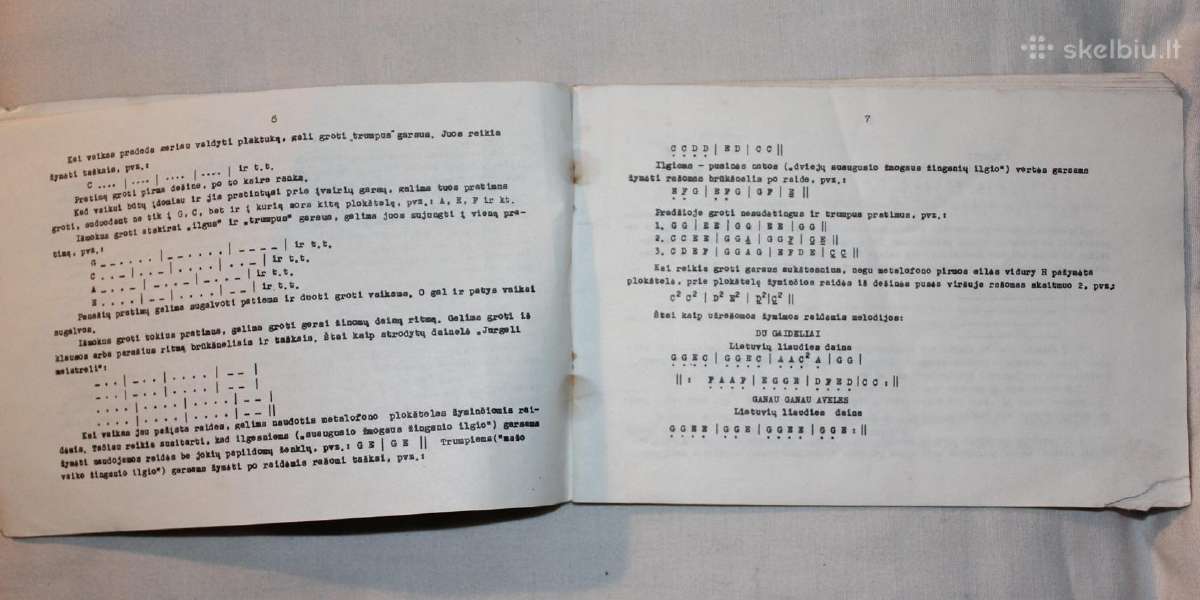 skelbiu.lt
6
Kai vaikas pradeda geriau valdyti plaktuką, gali groti „trumpus" garsus. Juos reikia
žymėti taškais, pvz.:
C .... | .... | .... | .... | ir t.t.
Pratimą groti pirma dešine, po to kaire ranka.
Kad vaikui būtų įdomiau ir jis pratintųsi prie įvairių garsų, galima tuos pratimus
groti, suduodant ne tik į G, C, bet ir į kurią nors kitą plokštelę, pvz.: A, E, F ir kt.
Išmokus groti atskirai „ilgus" ir „trumpus" garsus, galima juos sujungti į vieną pra-
timą, pvz.:
G | | ir t.t.
C | | | ir t.t.
A | | | ir t.t.
E | | | ir t.t.
Panašių pratimų galima sugalvoti patiems ir duoti groti vaikams. O gal ir patys vaikai
sugalvos.
Išmokus groti tokius pratimus, galima groti gerai žinomų dainų ritmą. Galima groti iš
klausos arba parašius ritmą brūkšneliais ir taškais. Štai kaip atrodytų dainelė „Jurgeli
meistreli":
_ . . | _ . . | . . . . | _ _ |
_ . . | _ . . | . . . . | _ _ |
. . . . | . . . . | . . . . | _ _ |
. . . . | . . . . | . . . . | _ _ ||
Kai vaikas jau pažįsta raides, galima naudotis metalofono plokšteles žyminčiomis rai-
dėmis. Tačiau reikia susitarti, kad ilgesniems („suaugusio žmogaus žingsnio ilgio") garsams
žymėti naudojamos raidės be jokių papildomų ženklų, pvz.: G E | G E || Trumpiems („mažo
vaiko žingsnio ilgio") garsams žymėti po raidėmis rašomi taškai, pvz.:
7
C C D D | E D | C C ||
Ilgiems - pusinės natos („dviejų suaugusio žmogaus žingsnių ilgio") vertės garsams
žymėti rašomas brūkšnelis po raide, pvz.:
E F G | E F G | G F | E ||
Pradžioje groti nesudėtingus ir trumpus pratimus, pvz.:
1. G G | E E | G G | E E | G G ||
2. C C E E | G G A | G G F | G E ||
3. C D E F | G G A G | E F D E | C C ||
Kai reikia groti garsus aukštesnius, negu metalofono pirmos eilės vidury H pažymėta
plokštelė, prie plokštelę žyminčios raidės iš dešinės pusės viršuje rašomas skaitmuo 2, pvz.:
C² C² | D² E² | D² | C² ||
Štai kaip užrašomos žymimos raidėmis melodijos:
DU GAIDELIAI
Lietuvių liaudies daina
G G E C | G G E C | A A C² A | G G |
||: F A A F | E G G E | D F E D | C C :||
GANAU GANAU AVELES
Lietuvių liaudies daina
G G E E | G G E | G G E E | G G E :||